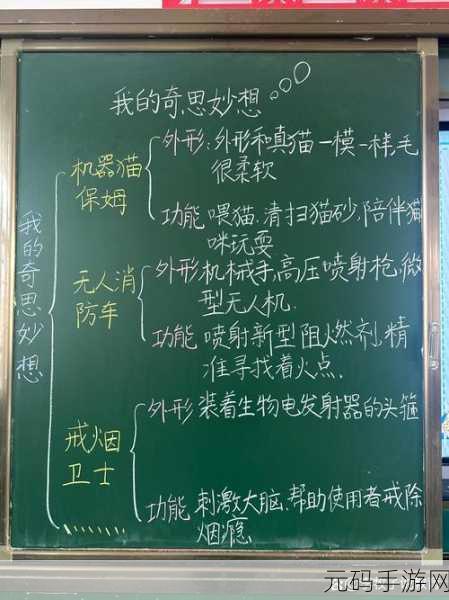 我的奇思妙想
我的奇思妙想
机器猫
保姆
外形:外形和真猫一模一样毛
很柔软
功能 喂猫.清扫猫砂,陪伴猫
咪玩耍
无人消
防车
外形 机械手,高压喷射枪,微
型无人机.
功能 喷射新型阻燃剂,精
准寻找着火点.
戒烟
卫士
外形 装着生物电发射器的头箍
功能 刺激大脑,帮助使用者戒除
烟瘾.
........
元码手游网